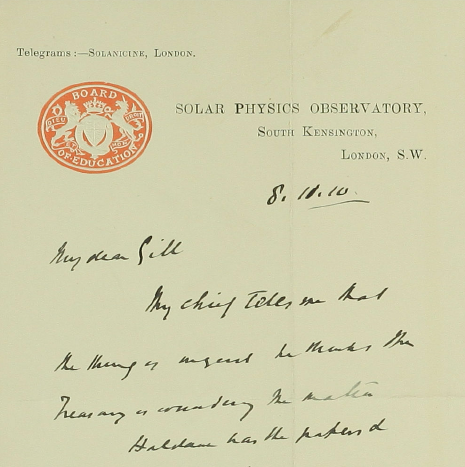 Telegrams :—Solanicine, London.
BOARD
OF·EDUCATION
DIEU
DROIT
SOLAR PHYSICS OBSERVATORY,
South Kensington,
London, S.W.
8.10.10
My dear Gill
My chief tells me that
the thing is urgent he thinks the
Treasury is considering the matter
Haldane has the papers &